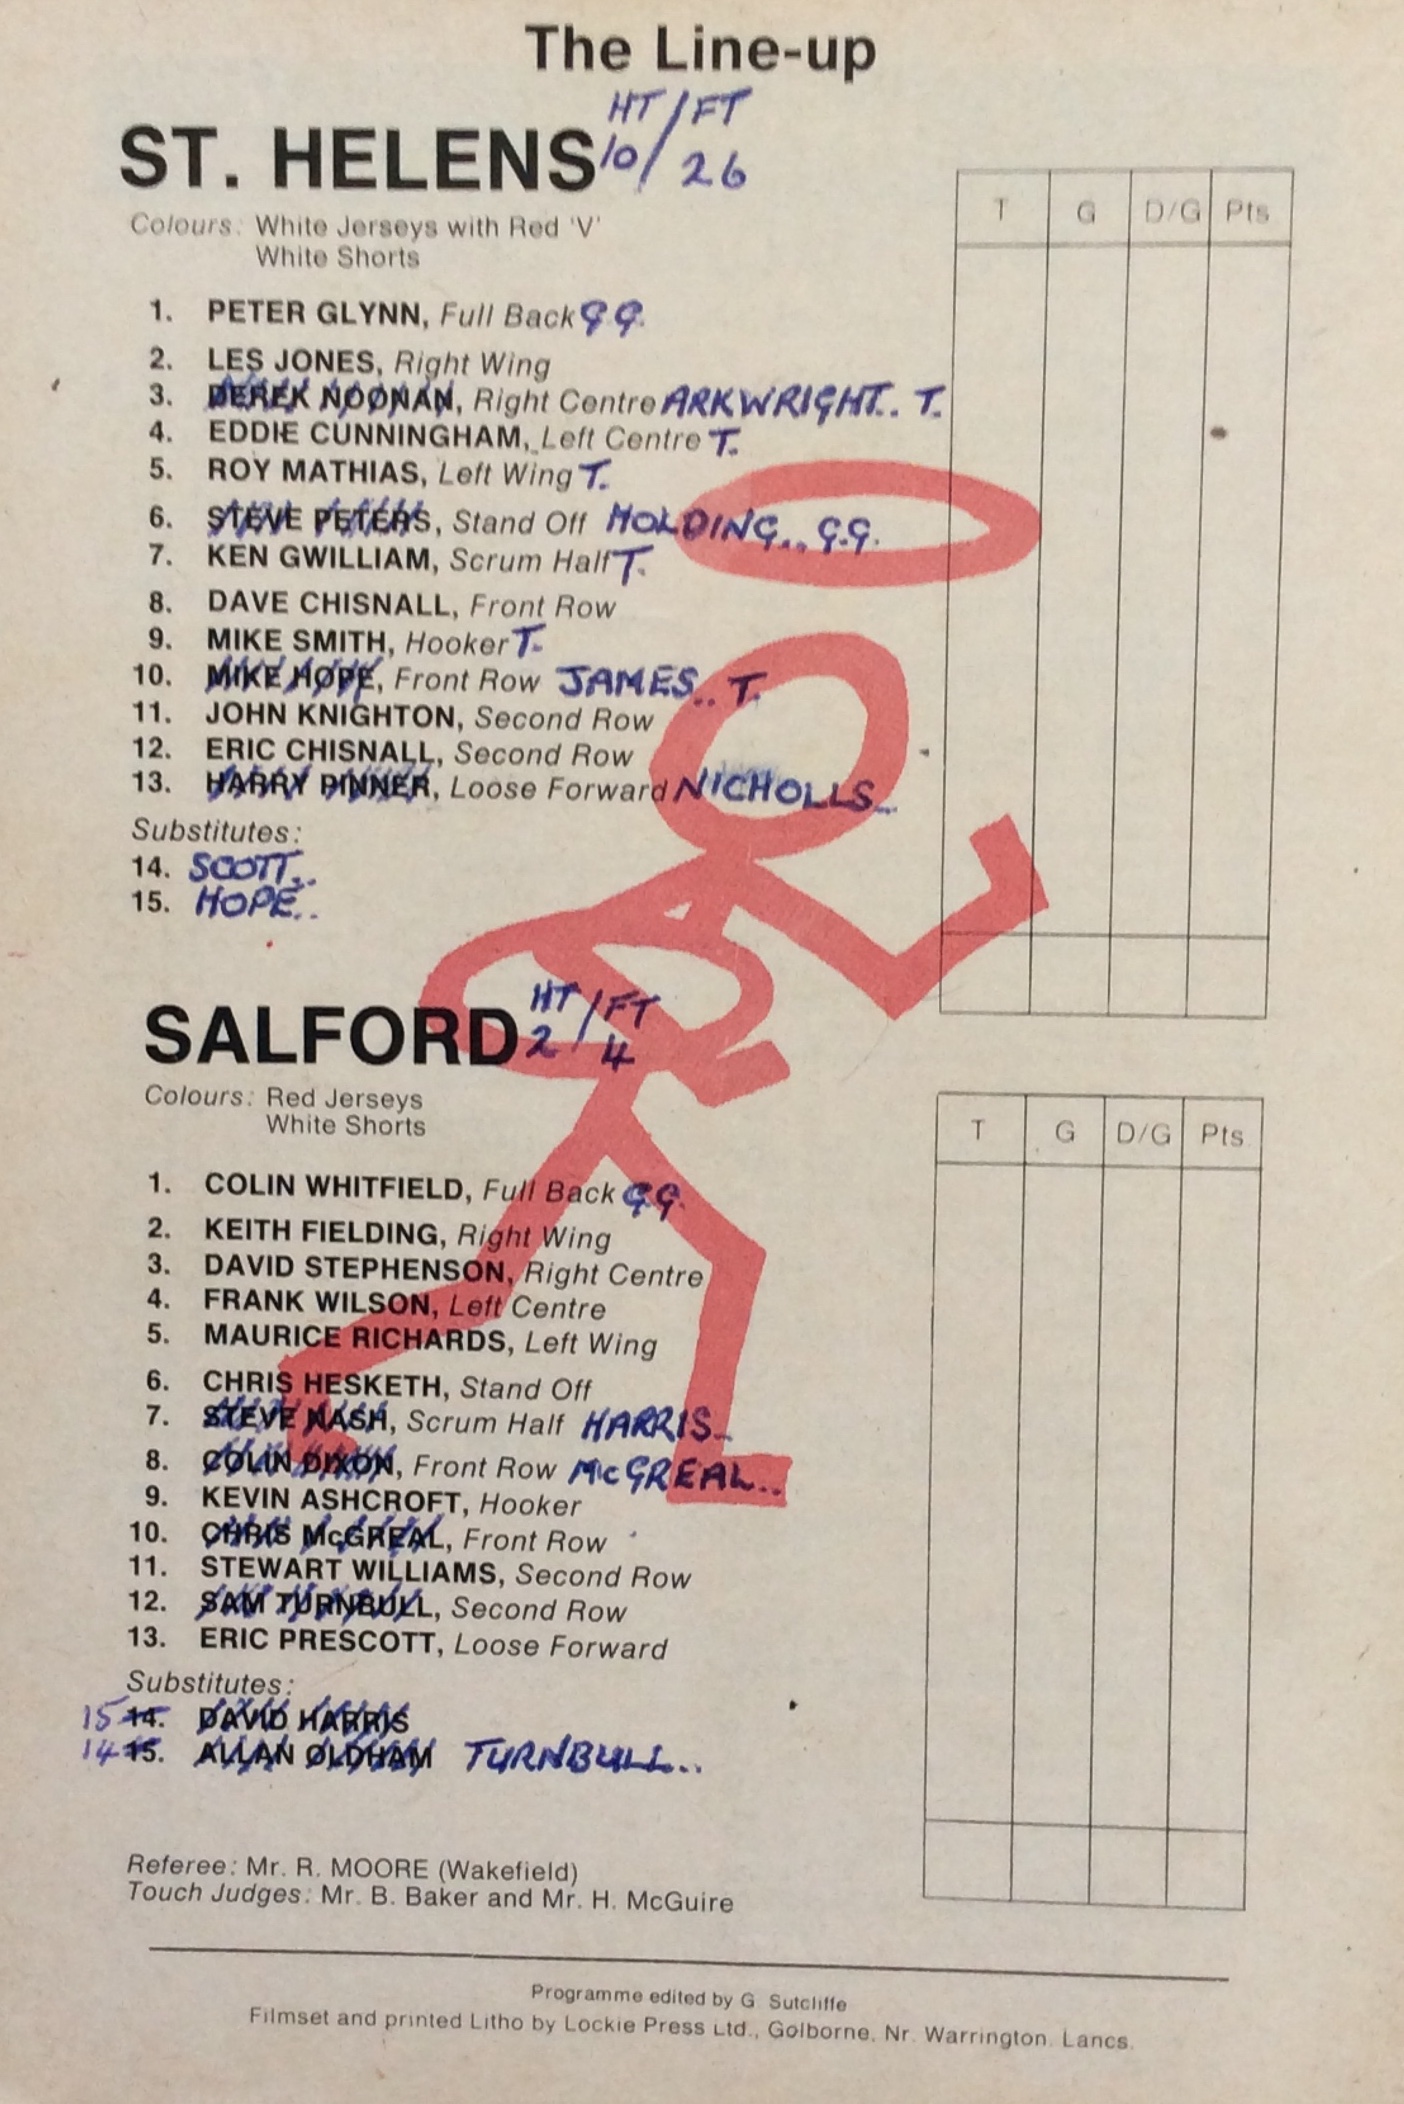 The Line-up
HT/FT
ST. HELENS 10/26
Colours: White Jerseys with Red 'V'
White Shorts
T G D/G Pts
1. PETER GLYNN, Full Back G G.
2. LES JONES, Right Wing
3. DEREK NOONAN, Right Centre ARKWRIGHT.. T.
4. EDDIE CUNNINGHAM, Left Centre T.
5. ROY MATHIAS, Left Wing T.
6. STEVE PETERS, Stand Off HOLDING.. G.G.
7. KEN GWILLIAM, Scrum Half T.
8. DAVE CHISNALL, Front Row
9. MIKE SMITH, Hooker T.
10. MIKE HOPE, Front Row JAMES.. T.
11. JOHN KNIGHTON, Second Row
12. ERIC CHISNALL, Second Row
13. HARRY PINNER, Loose Forward NICHOLLS..
Substitutes:
14. SCOTT..
15. HOPE..
HT/FT
SALFORD 2/4
Colours: Red Jerseys
White Shorts
T G D/G Pts
1. COLIN WHITFIELD, Full Back G G.
2. KEITH FIELDING, Right Wing
3. DAVID STEPHENSON, Right Centre
4. FRANK WILSON, Left Centre
5. MAURICE RICHARDS, Left Wing
6. CHRIS HESKETH, Stand Off
7. STEVE NASH, Scrum Half HARRIS..
8. COLIN DIXON, Front Row McGREAL..
9. KEVIN ASHCROFT, Hooker
10. CHRIS McGREAL, Front Row
11. STEWART WILLIAMS, Second Row
12. SAM TURNBULL, Second Row
13. ERIC PRESCOTT, Loose Forward
Substitutes:
15 14. DAVID HARRIS
14 15. ALLAN OLDHAM TURNBULL..
Referee: Mr. R. MOORE (Wakefield)
Touch Judges: Mr. B. Baker and Mr. H. McGuire
Programme edited by G. Sutcliffe
Filmset and printed Litho by Lockie Press Ltd., Golborne, Nr. Warrington. Lancs.